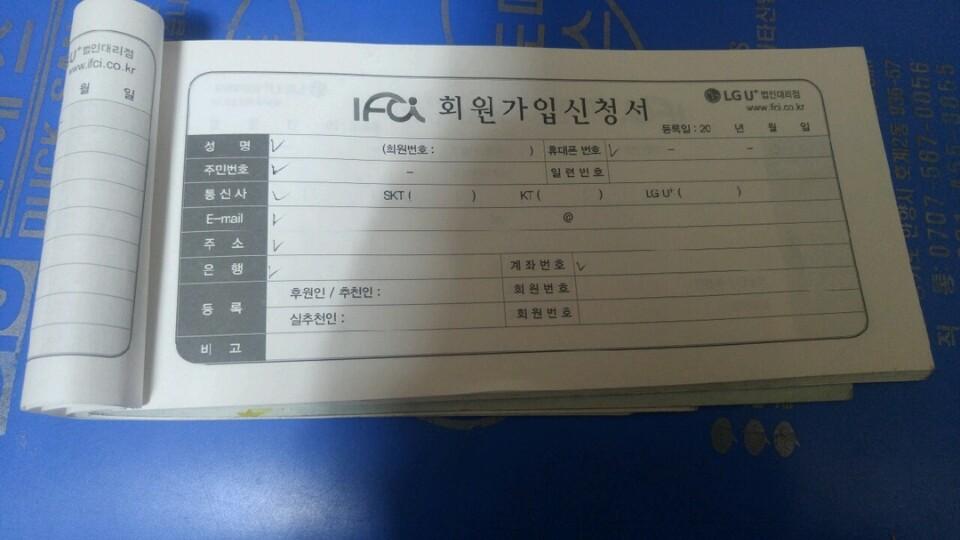 U+ 법인대리점
www.ifci.co.kr
월 일
IFCi 회원가입신청서
LG U+ 법인대리점
www.ifci.co.kr
등록일 : 20 년 월 일
성 명 (회원번호 : ) 휴대폰 번호 - -
주민번호 - 일련번호
통신사 SKT ( ) KT ( ) LG U+ ( )
E-mail @
주 소
은 행 계좌번호
등 록 후원인 / 추천인 : 회원번호
실추천인 : 회원번호
비 고